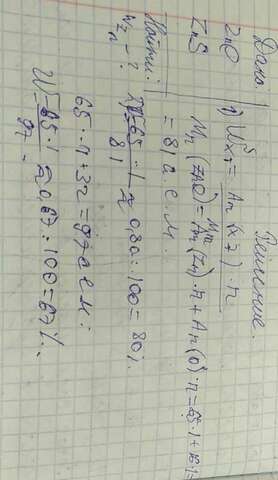 Дано:
ZnO
ZnS
Найти:
W Zn - ?
Решение
1) Wx = Ar(x) · n
Mr (ZnO) = Ar(Zn) · n + Ar(O) · n = 65 · 1 + 16 · 1 =
= 81 а. е. м.
65 · 1
81 ≈ 0,80 · 100 = 80%
65 · 1 + 32 = 97 а е м
W = 65 · 1
97 ≈ 0,67 · 100 = 67%.